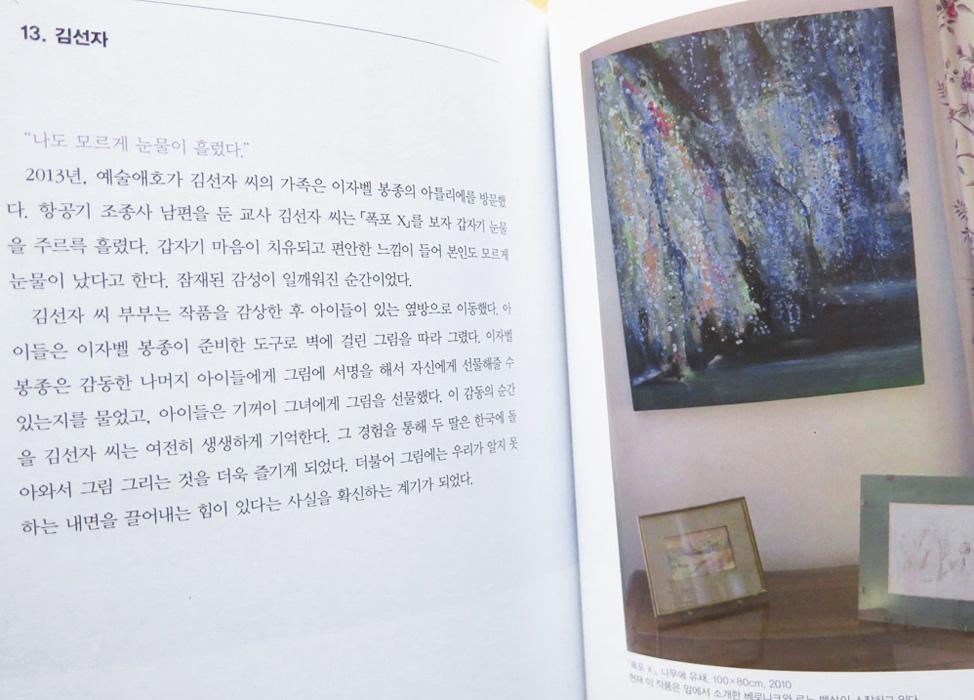 13. 김선자
“나도 모르게 눈물이 흘렀다.”
2013년, 예술애호가 김선자 씨의 가족은 이자벨 봉종의 아틀리에를 방문했
다. 항공기 조종사 남편을 둔 교사 김선자 씨는 「폭포 X」를 보자 갑자기 눈물
을 주르륵 흘렸다. 갑자기 마음이 치유되고 편안한 느낌이 들어 본인도 모르게
눈물이 났다고 한다. 잠재된 감성이 일깨워진 순간이었다.
김선자 씨 부부는 작품을 감상한 후 아이들이 있는 옆방으로 이동했다. 아
이들은 이자벨 봉종이 준비한 도구로 벽에 걸린 그림을 따라 그렸다. 이자벨
봉종은 감동한 나머지 아이들에게 그림에 서명을 해서 자신에게 선물해줄 수
있는지를 물었고, 아이들은 기꺼이 그녀에게 그림을 선물했다. 이 감동의 순간
을 김선자 씨는 여전히 생생하게 기억한다. 그 경험을 통해 두 딸은 한국에 돌
아와서 그림 그리는 것을 더욱 즐기게 되었다. 더불어 그림에는 우리가 알지 못
하는 내면을 끌어내는 힘이 있다는 사실을 확신하는 계기가 되었다.
「폭포 X」, 나무에 유채, 100×80cm, 2010
현재 이 작품은 앞에서 소개한 베로니크와